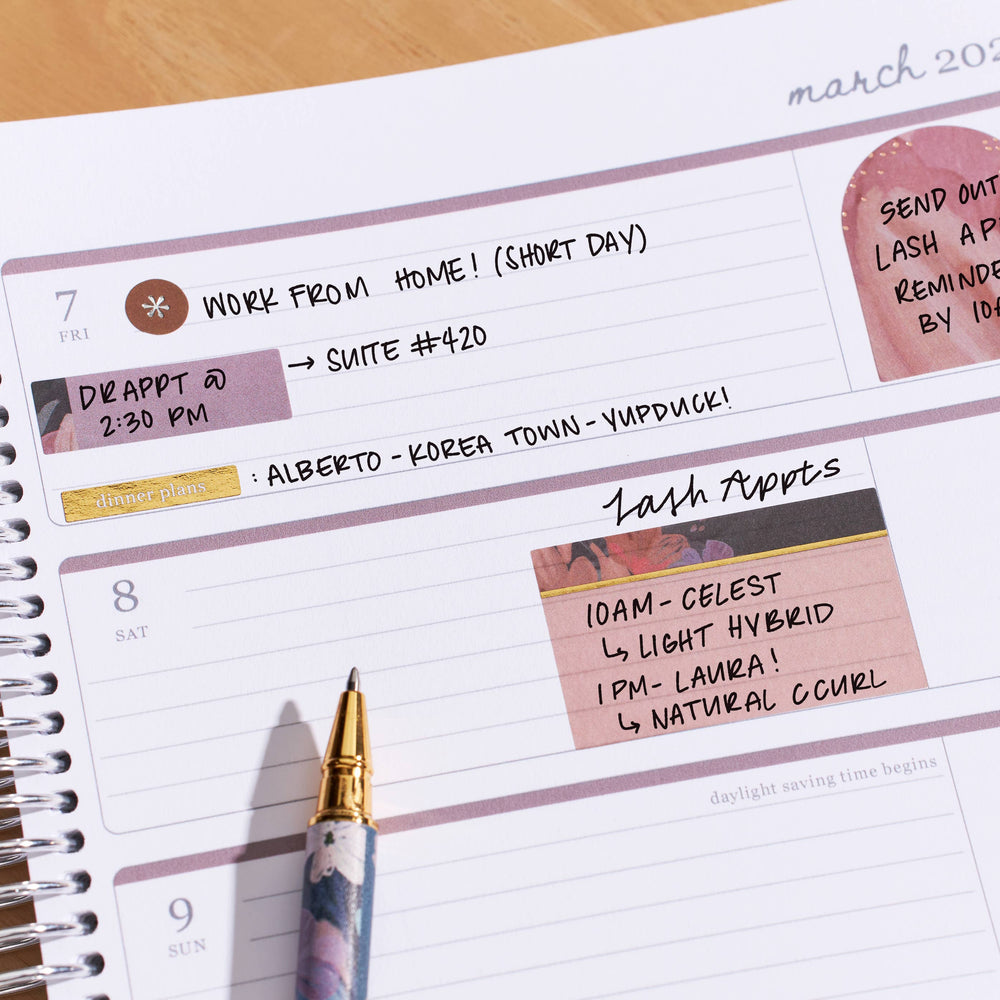 march
7
FRI
WORK FROM HOME! (SHORT DAY)
DR APPT @
2:30 PM
→ SUITE #420
dinner plans
: ALBERTO - KOREA TOWN - YUPDUCK!
SEND OUT
LASH
BY
8
SAT
Lash Appts
10AM - CELEST
↳ LIGHT HYBRID
1 PM - LAURA!
↳ NATURAL C CURL
daylight saving time begins
9
SUN